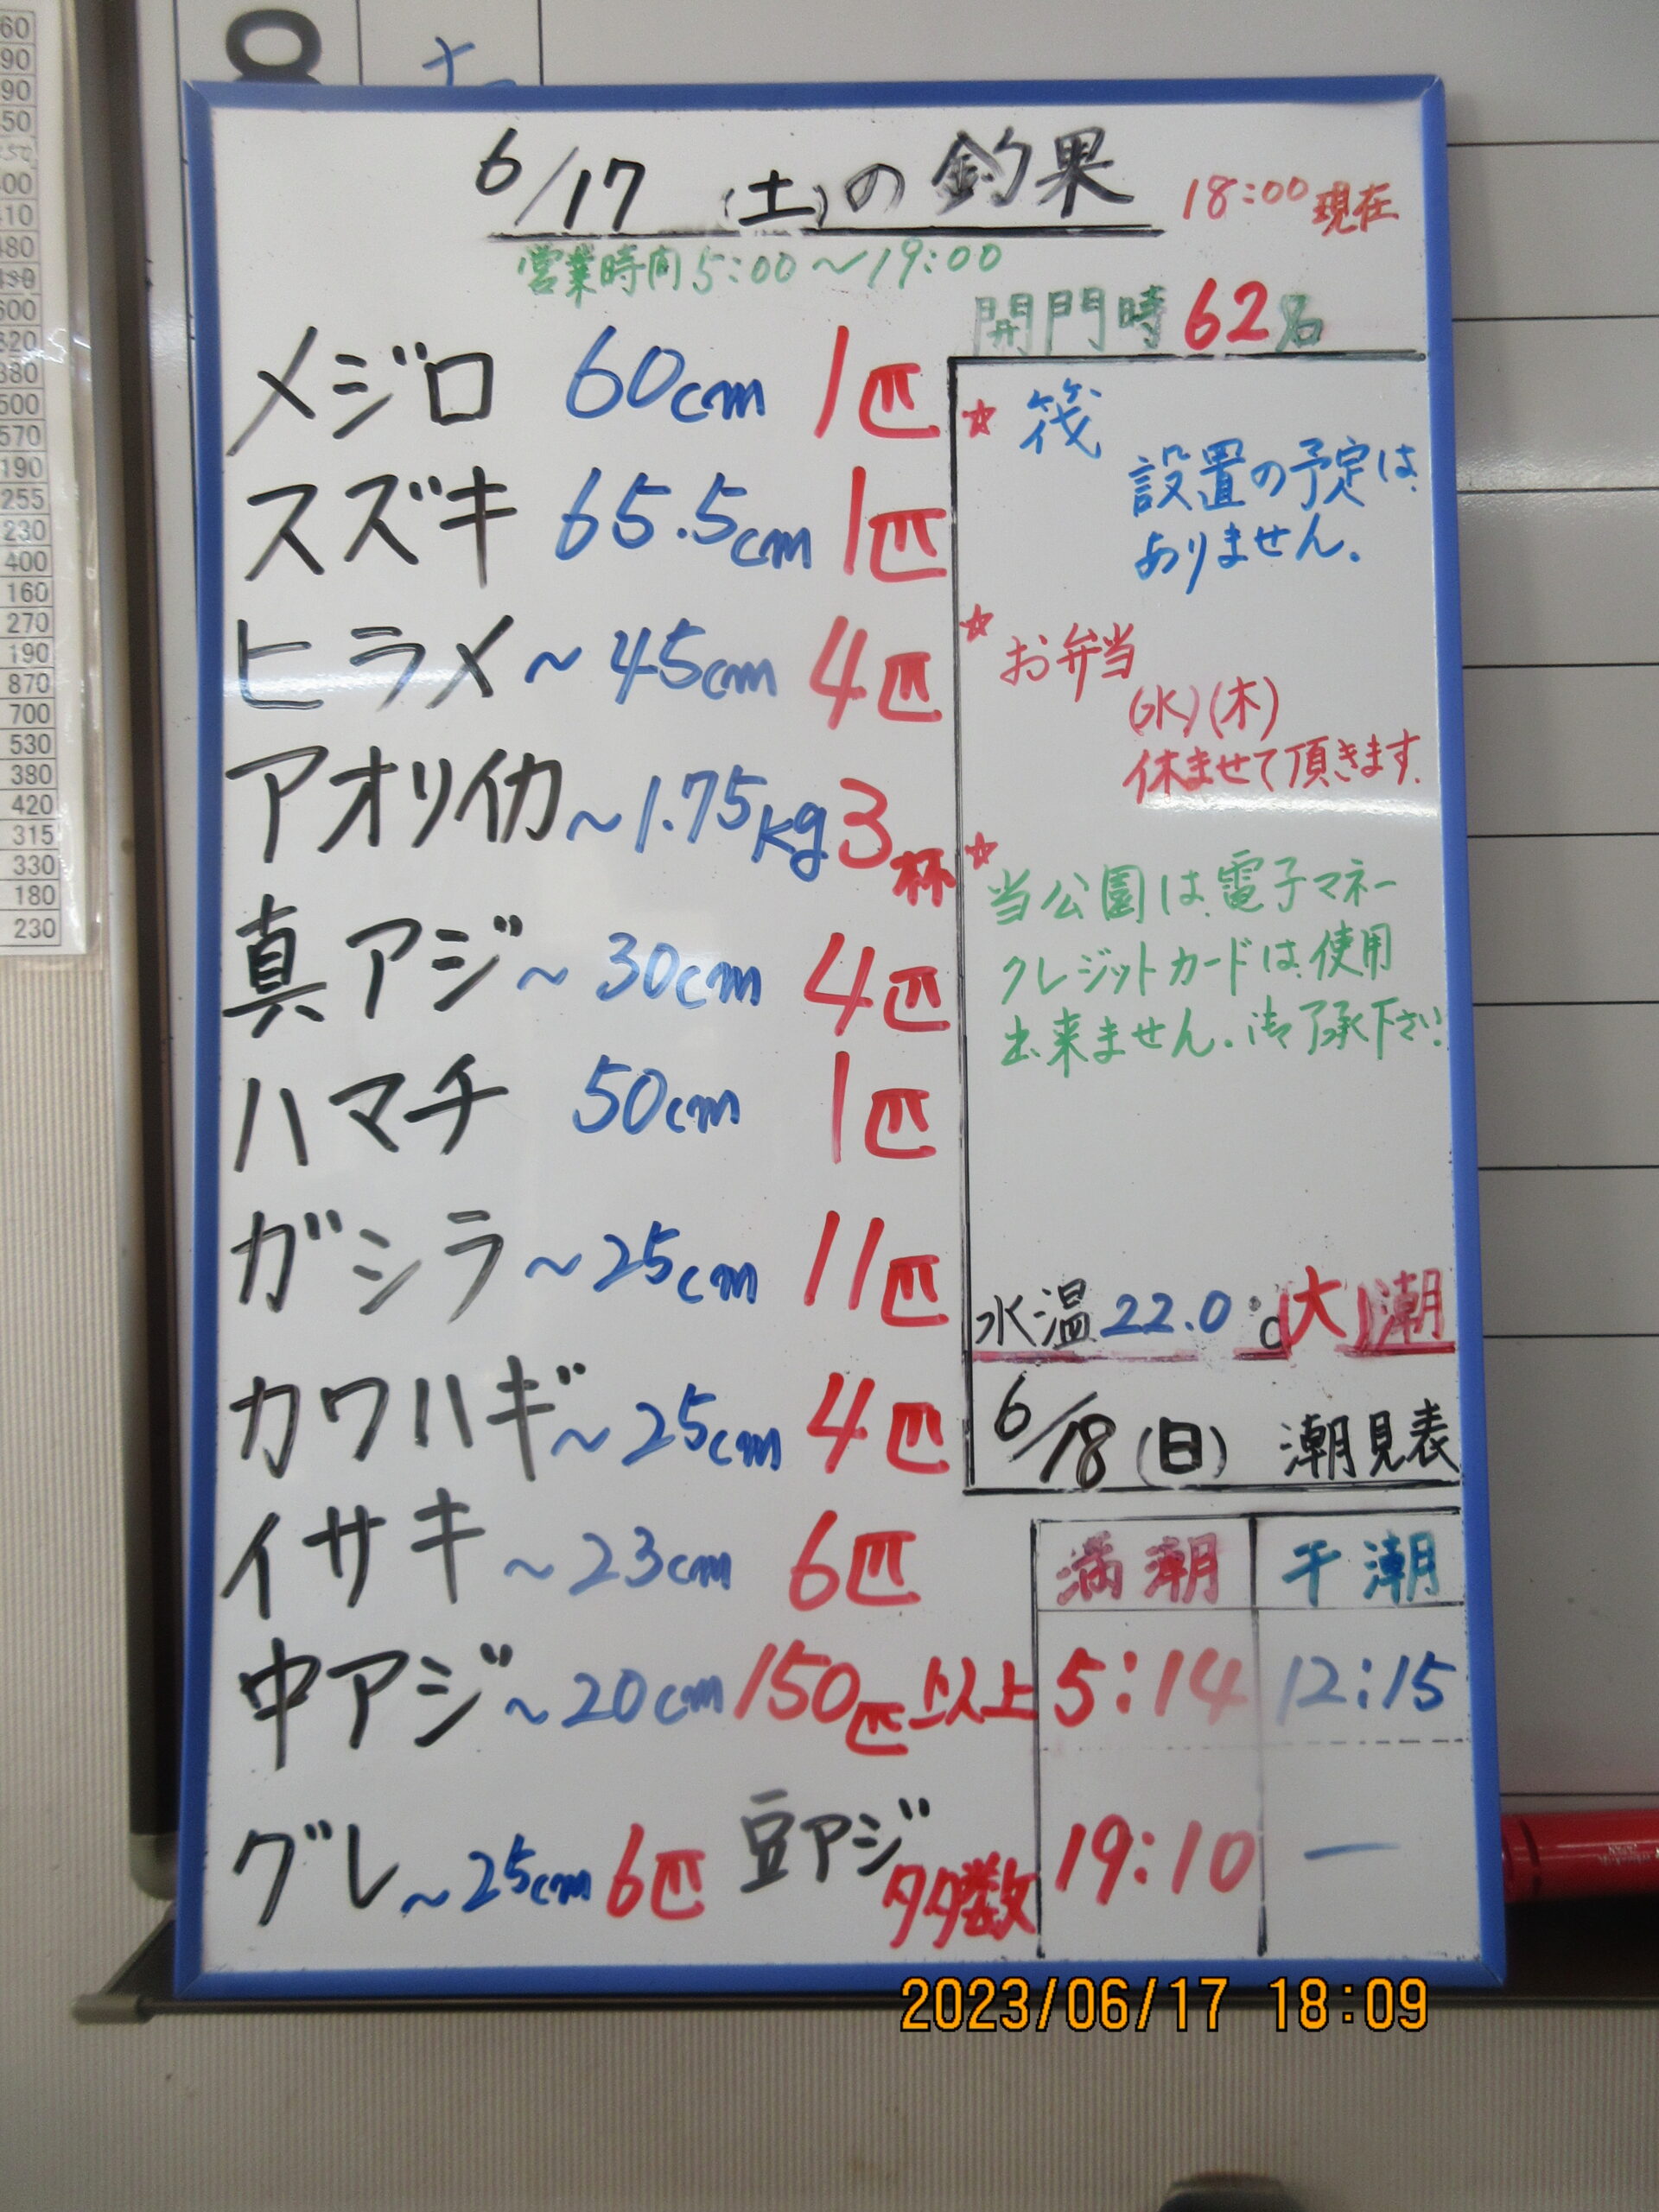 6/17 (土)の釣果 18:00現在
営業時間5:00〜19:00
開門時62名
メジロ 60cm 1匹
スズキ 65.5cm 1匹
ヒラメ〜45cm 4匹
アオリイカ〜1.75kg 3杯
真アジ〜30cm 4匹
ハマチ 50cm 1匹
ガシラ〜25cm 11匹
カワハギ〜25cm 4匹
イサキ〜23cm 6匹
中アジ〜20cm 150匹以上
グレ〜25cm 6匹 豆アジ
多数
☆ 筏
設置の予定は
ありません。
☆ お弁当
(水)(木)
休ませて頂きます.
☆
当公園は電子マネー
クレジットカードは使用
出来ません。御了承下さい
水温22.0℃(大)潮
6/18(日) 潮見表
満潮 干潮
5:14 12:15
19:10 ー
2023/06/17 18:09
60
90
90
50
00
10
480
600
320
380
500
570
190
255
230
400
160
270
190
870
700
530
380
420
315
330
180
230